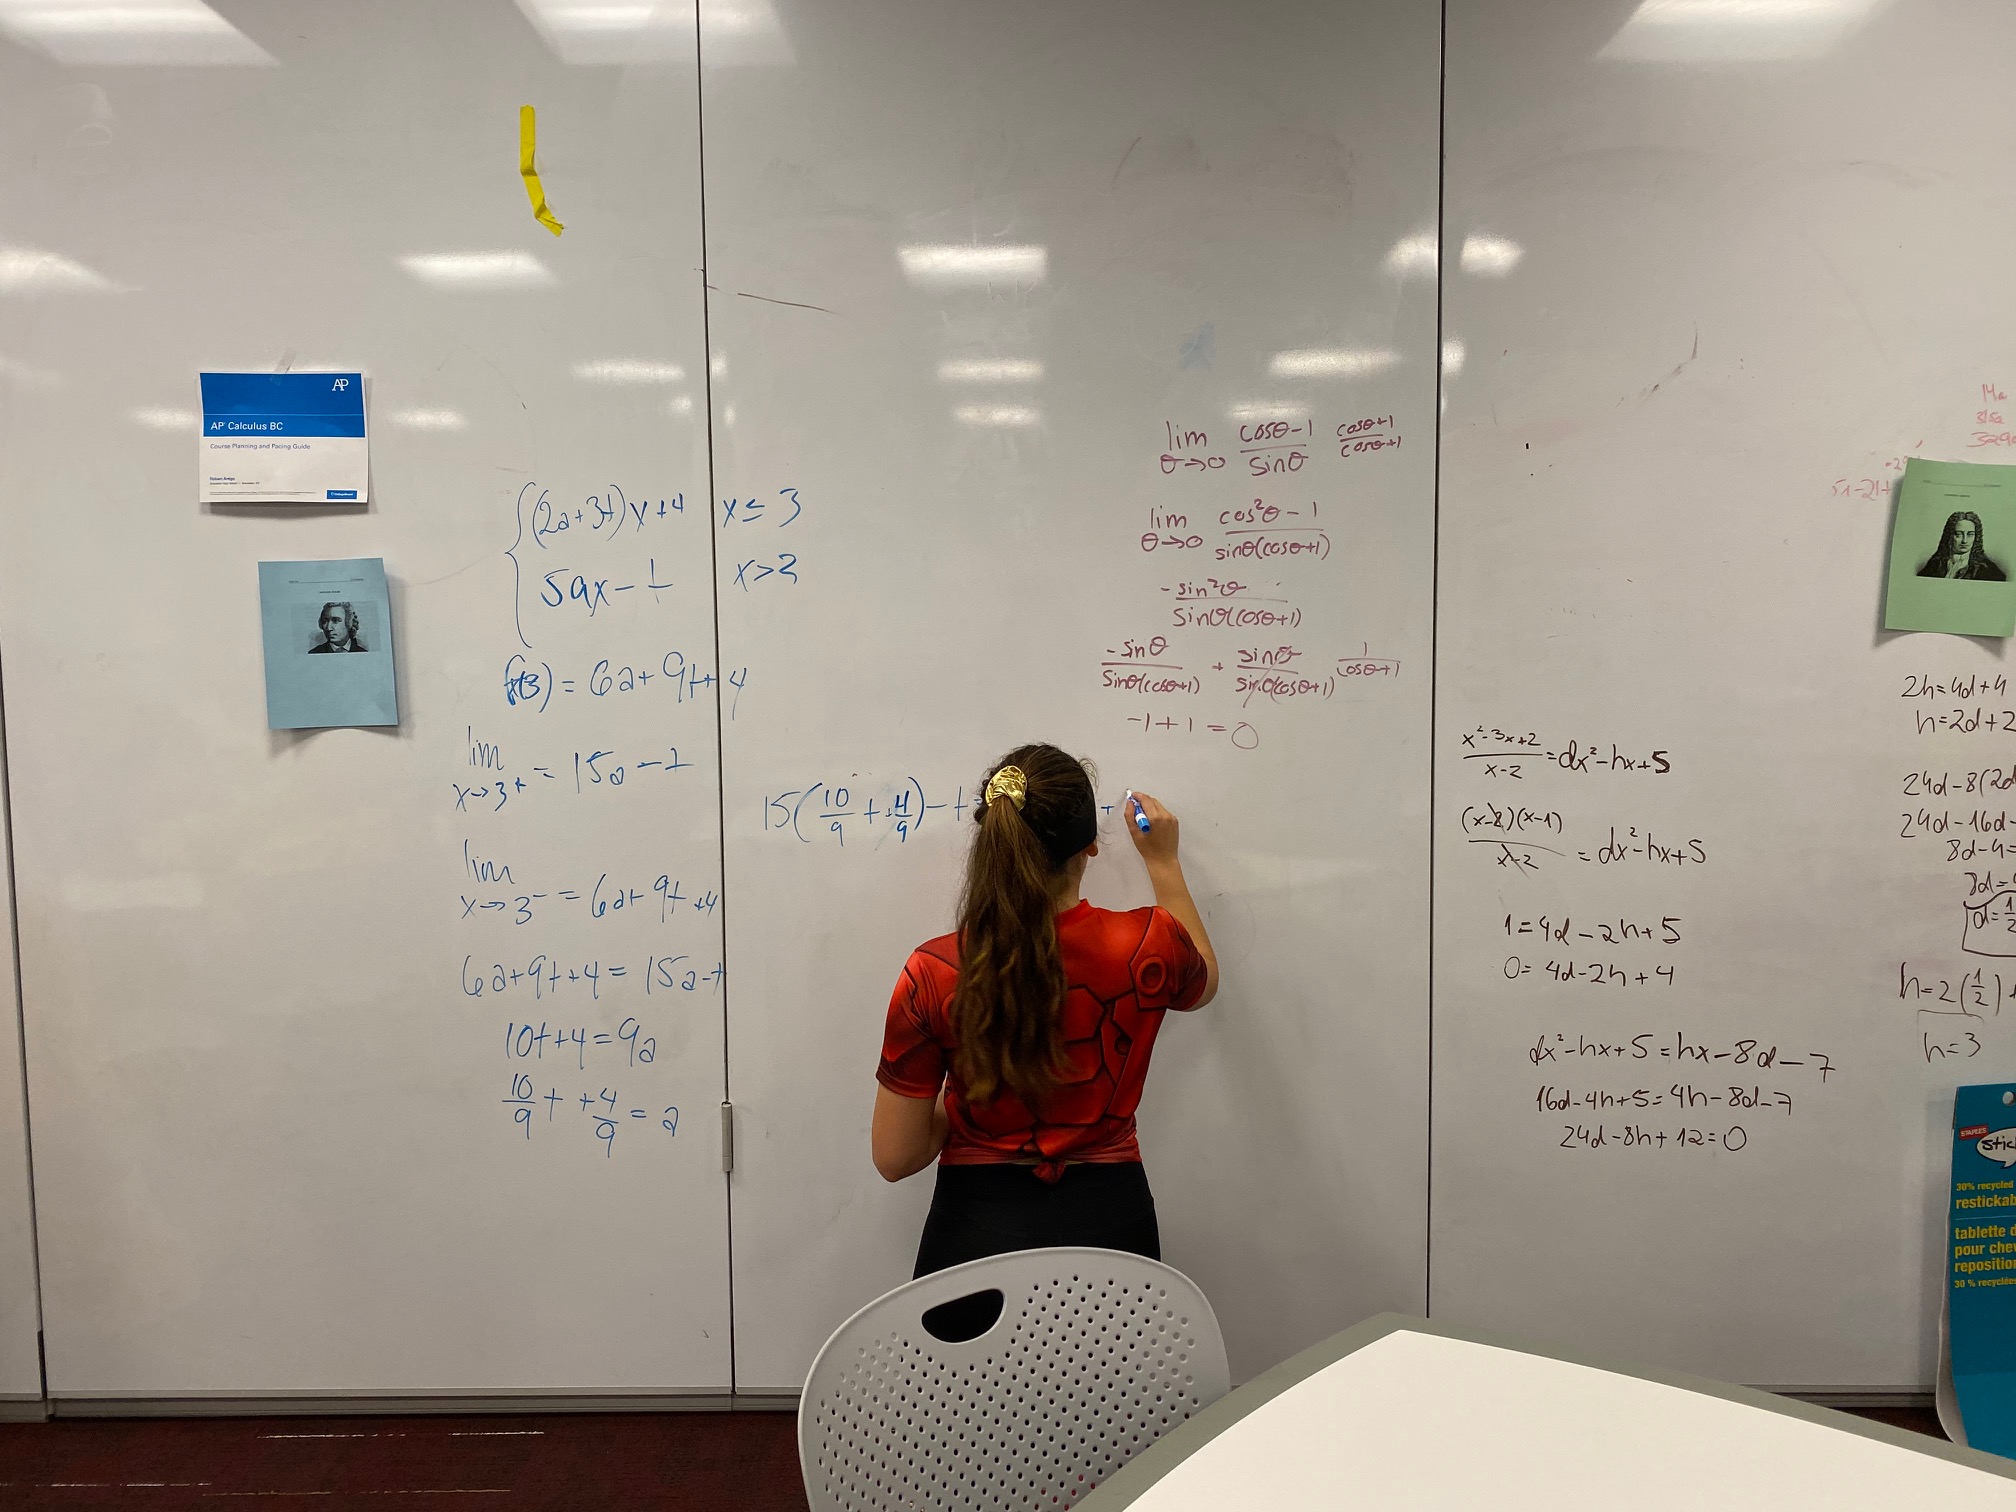 AP
AP® Calculus BC
Course Planning and Pacing Guide
CollegeBoard
(2a+3t)x+4 x ≤ 3
5ax - t x>3
f(3) = 6a+9t+4
lim x→3⁺ = 15a - t
lim x→3⁻ = 6a+9t+4
6a+9t+4 = 15a-t
10t+4=9a
10/9 t + 4/9 = a
15(10/9 t + 4/9) - t =
+
lim θ→0 cosθ-1/sinθ cosθ+1/cosθ+1
lim θ→0 cos²θ-1/sinθ(cosθ+1)
-sin²θ/sinθ(cosθ+1)
-sinθ/sinθ(cosθ+1) + sinθ/sinθ(cosθ+1) 1/cosθ+1
-1+1=0
x²-3x+2/x-2 = dx²-hx+5
(x-2)(x-1)/x-2 = dx²-hx+5
1=4d-2h+5
0=4d-2h+4
dx²-hx+5=hx-8d-7
16d-4h+5=4h-8d-7
24d-8h+12=0
2h=4d+4
h=2d+2
24d-8(2d
24d-16d-
8d-4=
8d=
d=1/2
h=2(1/2)+
h=3
STAPLES
stic
30% recycled
restickab
tablette d
pour che
repositio
30 % recyclée